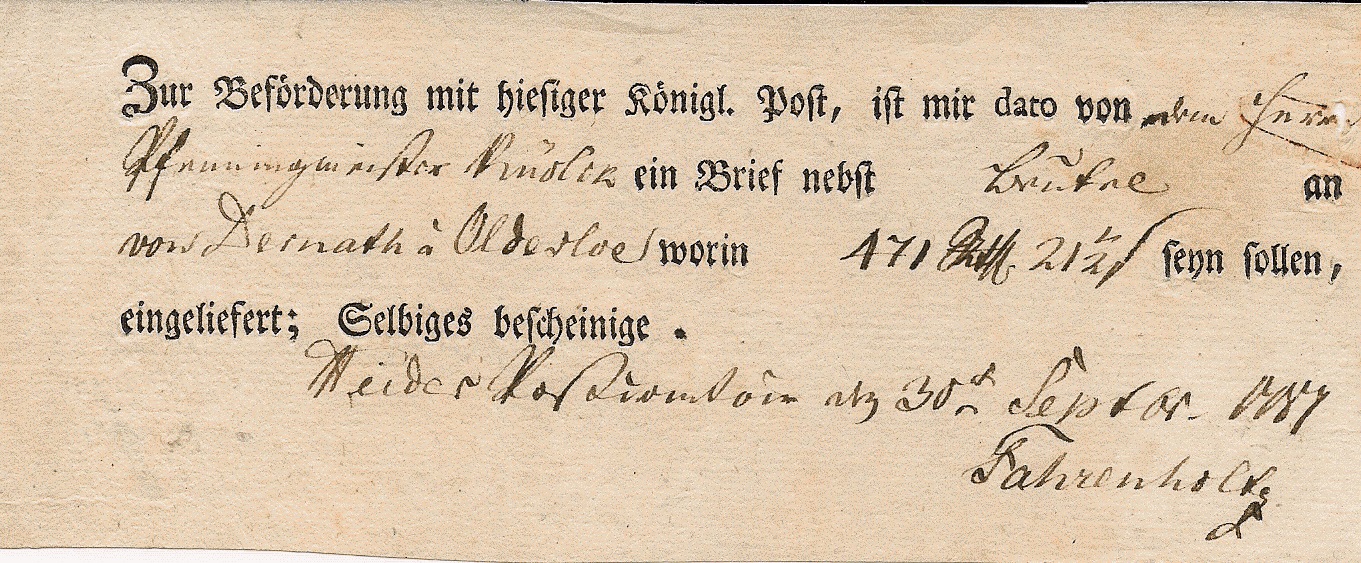 Zur Beförderung mit hiesiger Königl. Post, ist mir dato von dem Herrn
Pfenningmeister ein Brief nebst Beutel an
von Dernath à Oldesloe worin 471 Rthl. 21½ ß seyn sollen,
eingeliefert; Selbiges bescheinige.
Heider Postcomtoir den 30st Septbr. 1787
Fahrenholtz